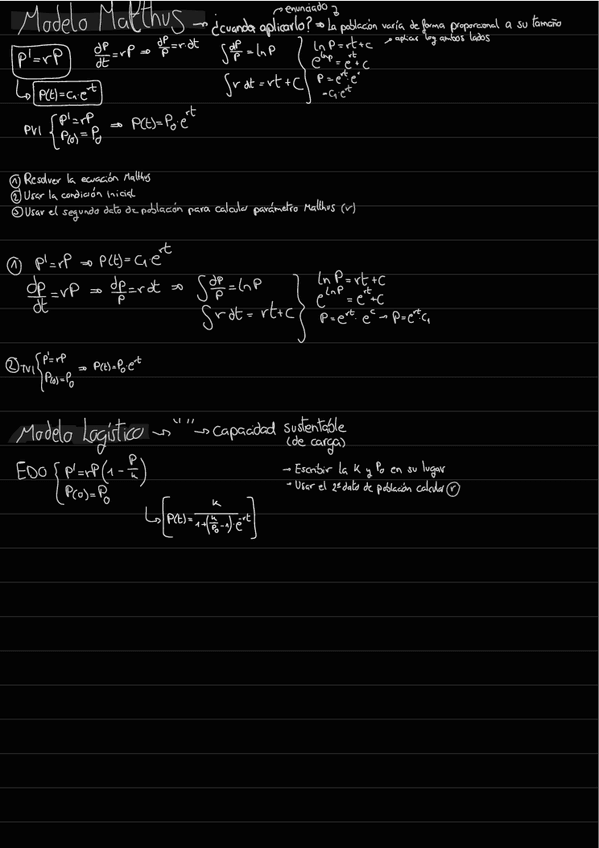 Modelo Malthus → ¿cuando aplicarlo? ⇒ La población varía de forma proporcional a su tamaño
enunciado
P'=rP
dP/dt=rP ⇒ dP/P=r dt
∫dP/P = ln P
∫r dt = rt+C
ln P=rt+c → aplicar log ambos lados
e^lnP = e^rt+c
P=e^rt·e^c
=C₁·e^rt
↳ P(t)=C₁·e^rt
PVI { P'=rP
P(0)=P₀ ⇒ P(t)=P₀·e^rt
① Resolver la ecuación Malthus
② Usar la condición inicial
③ Usar el segundo dato de población para calcular parámetro Malthus (r)
① P'=rP ⇒ P(t)=C₁·e^rt
dP/dt=rP ⇒ dP/P=r dt ⇒ ∫dP/P=ln P
∫r dt = rt+C
ln P=rt+C
e^LnP = e^rt+C
P=e^rt·e^c → P=e^rt·C₁
② { P'=rP
P(0)=P₀ ⇒ P(t)=P₀·e^rt
Modelo Logístico → " " → capacidad sustentable
(de carga)
EDO { P'=rP(1-P/k)
P(0)=P₀
→ Escribir la K y P₀ en su lugar
→ Usar el 2º dato de población calcular (r)
↳ [P(t)=k/(1+(k/P₀-1)·e^-rt)]